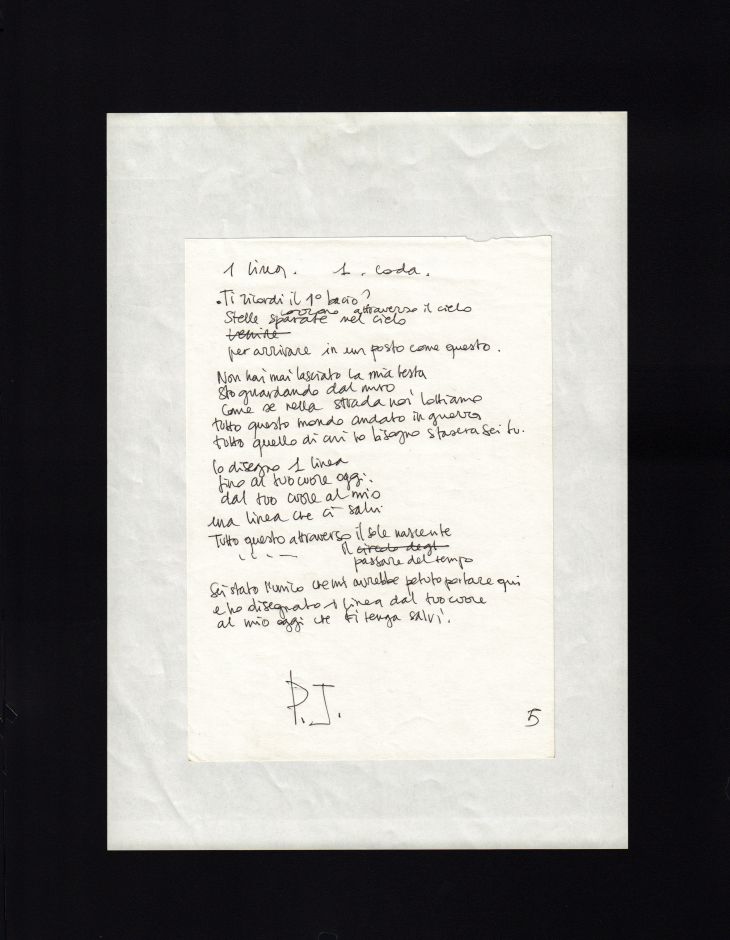 1 linea. 1. coda.
.Ti ricordi il 1º bacio?
corrono attraverso il cielo
Stelle sparate nel cielo
venire
per arrivare in un posto come questo.
Non hai mai lasciato la mia testa
sto guardando dal muro
come se nella strada noi lottiamo
tutto questo mondo andato in guerra
tutto quello di cui ho bisogno stasera sei tu.
Io disegno 1 linea
fino al tuo cuore oggi.
dal tuo cuore al mio
una linea che ci salvi
Tutto questo attraverso il sole nascente
il circolo degl
passare del tempo
Sei stato l'unico che mi avrebbe potuto portare qui
e ho disegnato 1 linea dal tuo cuore
al mio oggi che ti tenga salvi.
P.J.
5